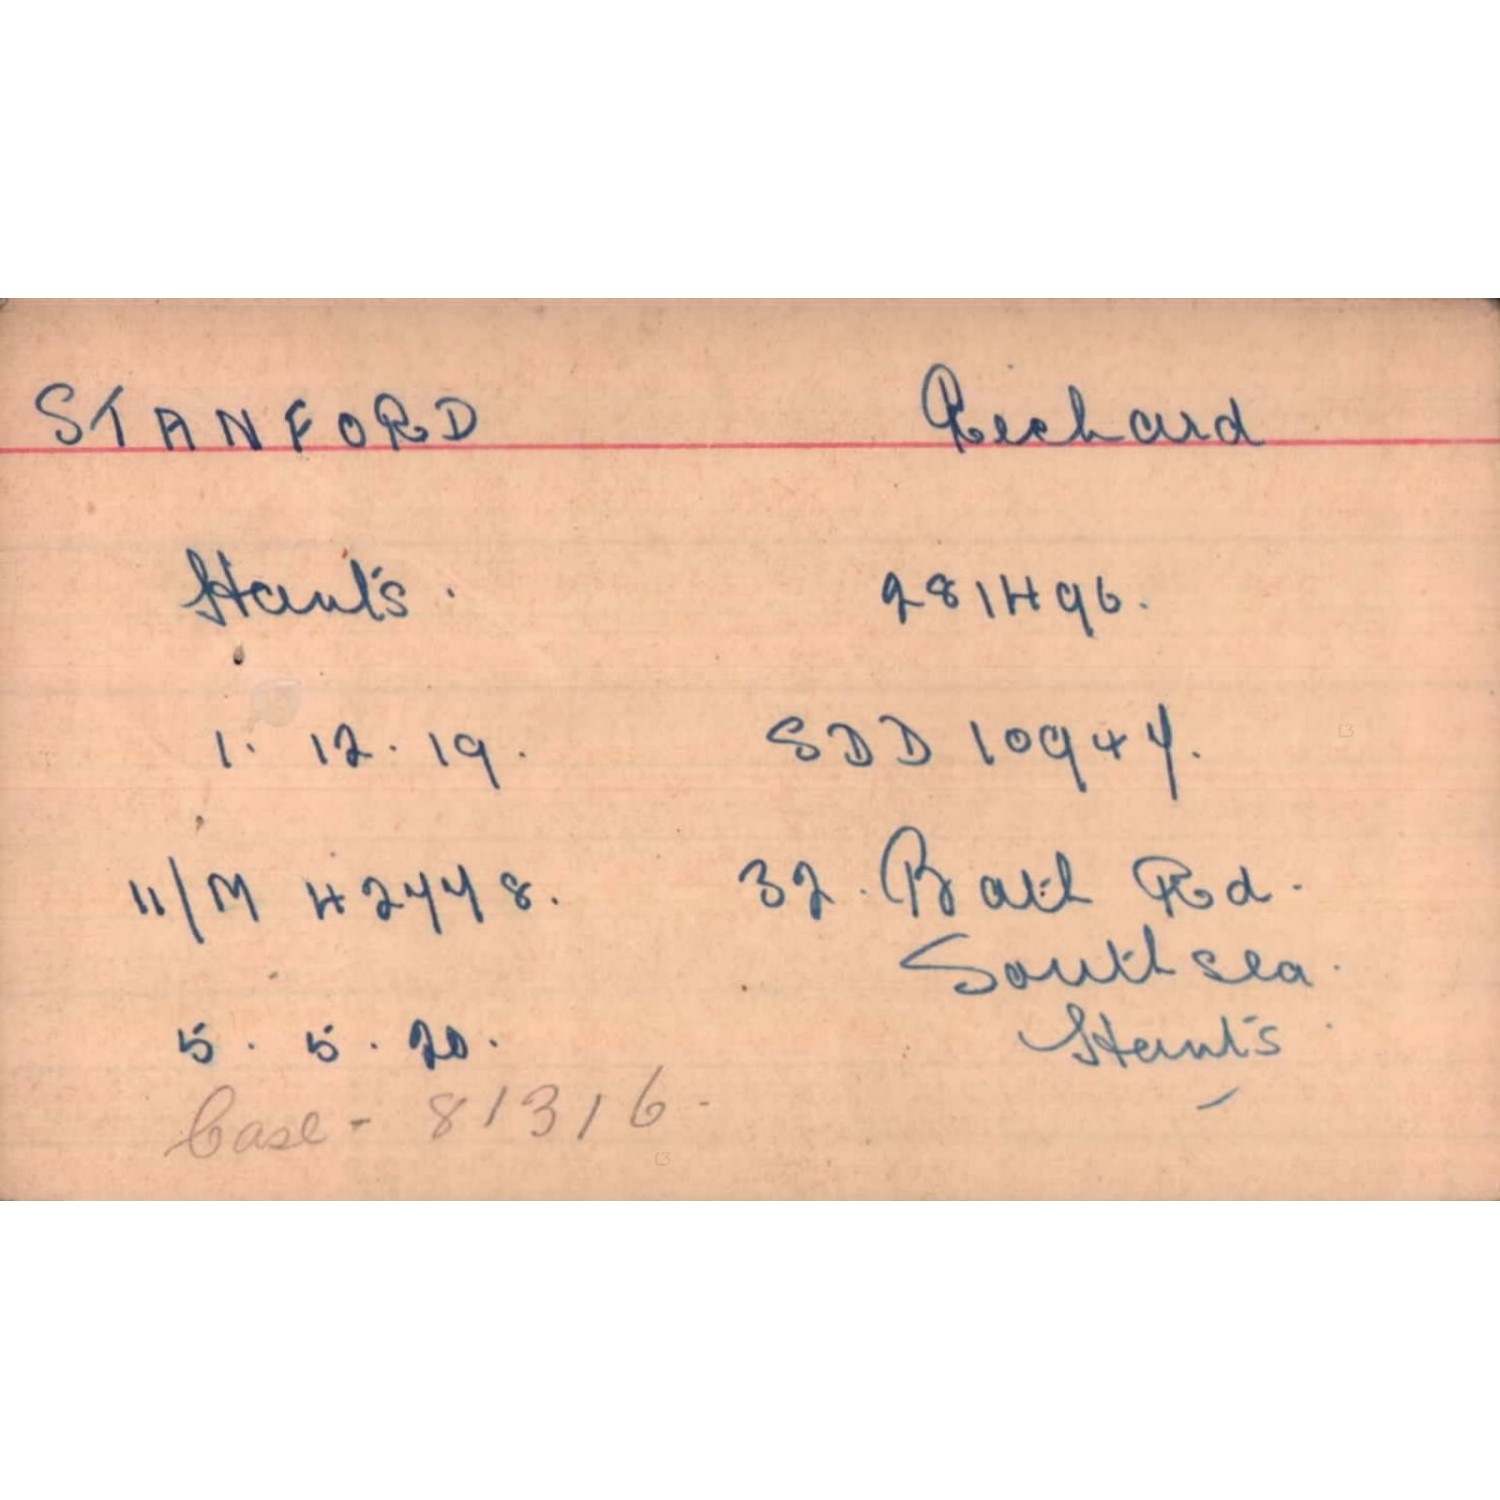 STANFORD Richard
Hants. 281496.
1. 12. 19. SDD 10947.
11/M 42778. 32. Bath Rd.
Southsea.
Hants
5. 5. 20.
Case - 81316.